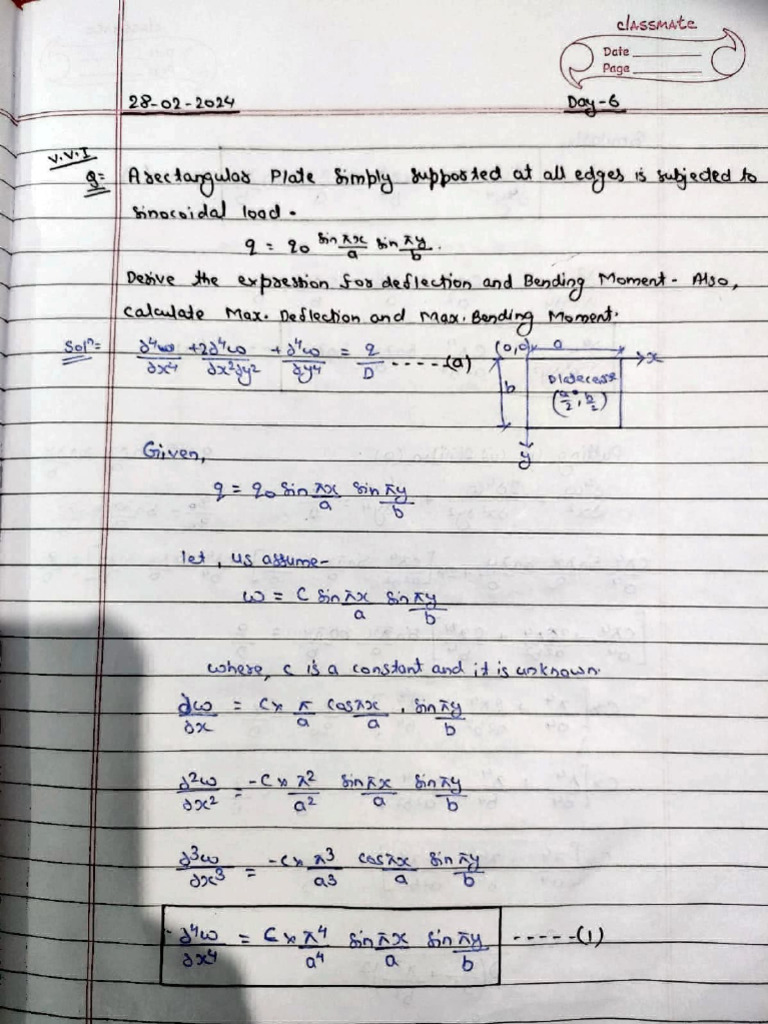 classmate
Date
Page
28-02-2024 Day-6
V.V.I
Q= A rectangular Plate Simply Supported at all edges is subjected to
Sinocoidal load.
q = q₀ sin πx/a sin πy/b.
Derive the expression for deflection and Bending Moment. Also,
calculate Max. Deflection and Max. Bending Moment.
Solⁿ= ∂⁴ω/∂x⁴ + 2∂⁴ω/∂x²∂y² + ∂⁴ω/∂y⁴ = q/D -----(a)
(0,0) a x
b
(a/2, b/2)
y
Given,
q = q₀ Sin πx/a Sin πy/b
let, us assume-
ω = C Sin πx/a Sin πy/b
where, C is a constant and it is unknown.
∂ω/∂x = C × π/a Cos πx/a . Sin πy/b
∂²ω/∂x² = -C × π²/a² Sin πx/a Sin πy/b
∂³ω/∂x³ = -C × π³/a³ cos πx/a Sin πy/b
∂⁴ω/∂x⁴ = C × π⁴/a⁴ Sin πx/a Sin πy/b -----(1)